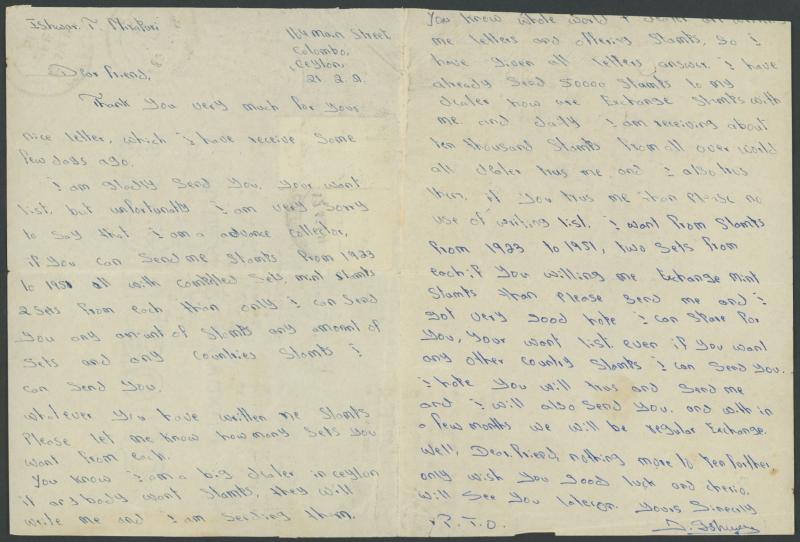 Ishwar. T. Mirpuri
164 Main Street
Colombo,
Ceylon.
21. 2. 2.
Dear Friend,
Thank you very much for your
nice letter, which i have receive some
few days ago.
i am gladly send you. your want
list. but unfortunatly i am very sorry
to say that i am a advance collector,
if you can send me stamps from 1923
to 1951 all with completed sets, mint stamps
2 sets from each than only i can send
you any amount of stamps any amount of
sets and any countries stamps i
can send you.
whatever you have written me stamps
please let me know how many sets you
want from each.
You know i am a big dealer in ceylon
if anybody want stamps, they will
write me and i am sending them.
P.T.O.
You know whole world
me letters and offering stamps, so i
have given all letters answer. i have
already send 50000 stamps to my
dealer now are exchange stamps with
me. and daily i am receiving about
ten thousand stamps from all over world
all dealer trus me. and i also trus
them. if you trus me than please no
use of writing list. i want from stamps
from 1923 to 1951, two sets from
each. if you willing me exchange mint
stamps than please send me and i
got very good hope i can spare for
you, your want list even if you want
any other country stamps i can send you.
i hope you will trus and send me
and i will also send you. and with in
a few months we will be regular exchange.
well, Dear. friend, nothing more to pen further
only wish you good luck and cherio.
will see you lateron. Yours Sincerly